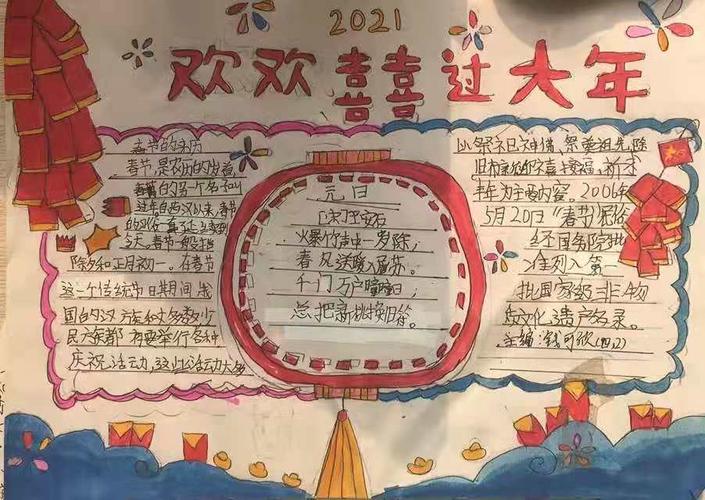 2021
欢欢囍过大年
春节的来历
春节,是农历的岁首,
春节的另一个名叫
过年自西汉以来,春节
的习俗一直延续到
今天。春节一般指
除夕和正月初一。在春节
这一个传统节日期间,我
国的汉族和大多数少
民族都要举行各种
庆祝活动,这些活动大多
元日
火暴竹声中一岁除,
春风送暖入屠苏。
千门万户曈曈日,
总把新桃换旧符。
以祭祀神佛、祭奠祖先、除
旧布新、迎禧接福、祈求
丰年为主要内容。2006年
5月20日“春节”民俗
经国务院批
准列入第一
批国家级非物
质文化遗产名录。
主编:钱可欣(四2)